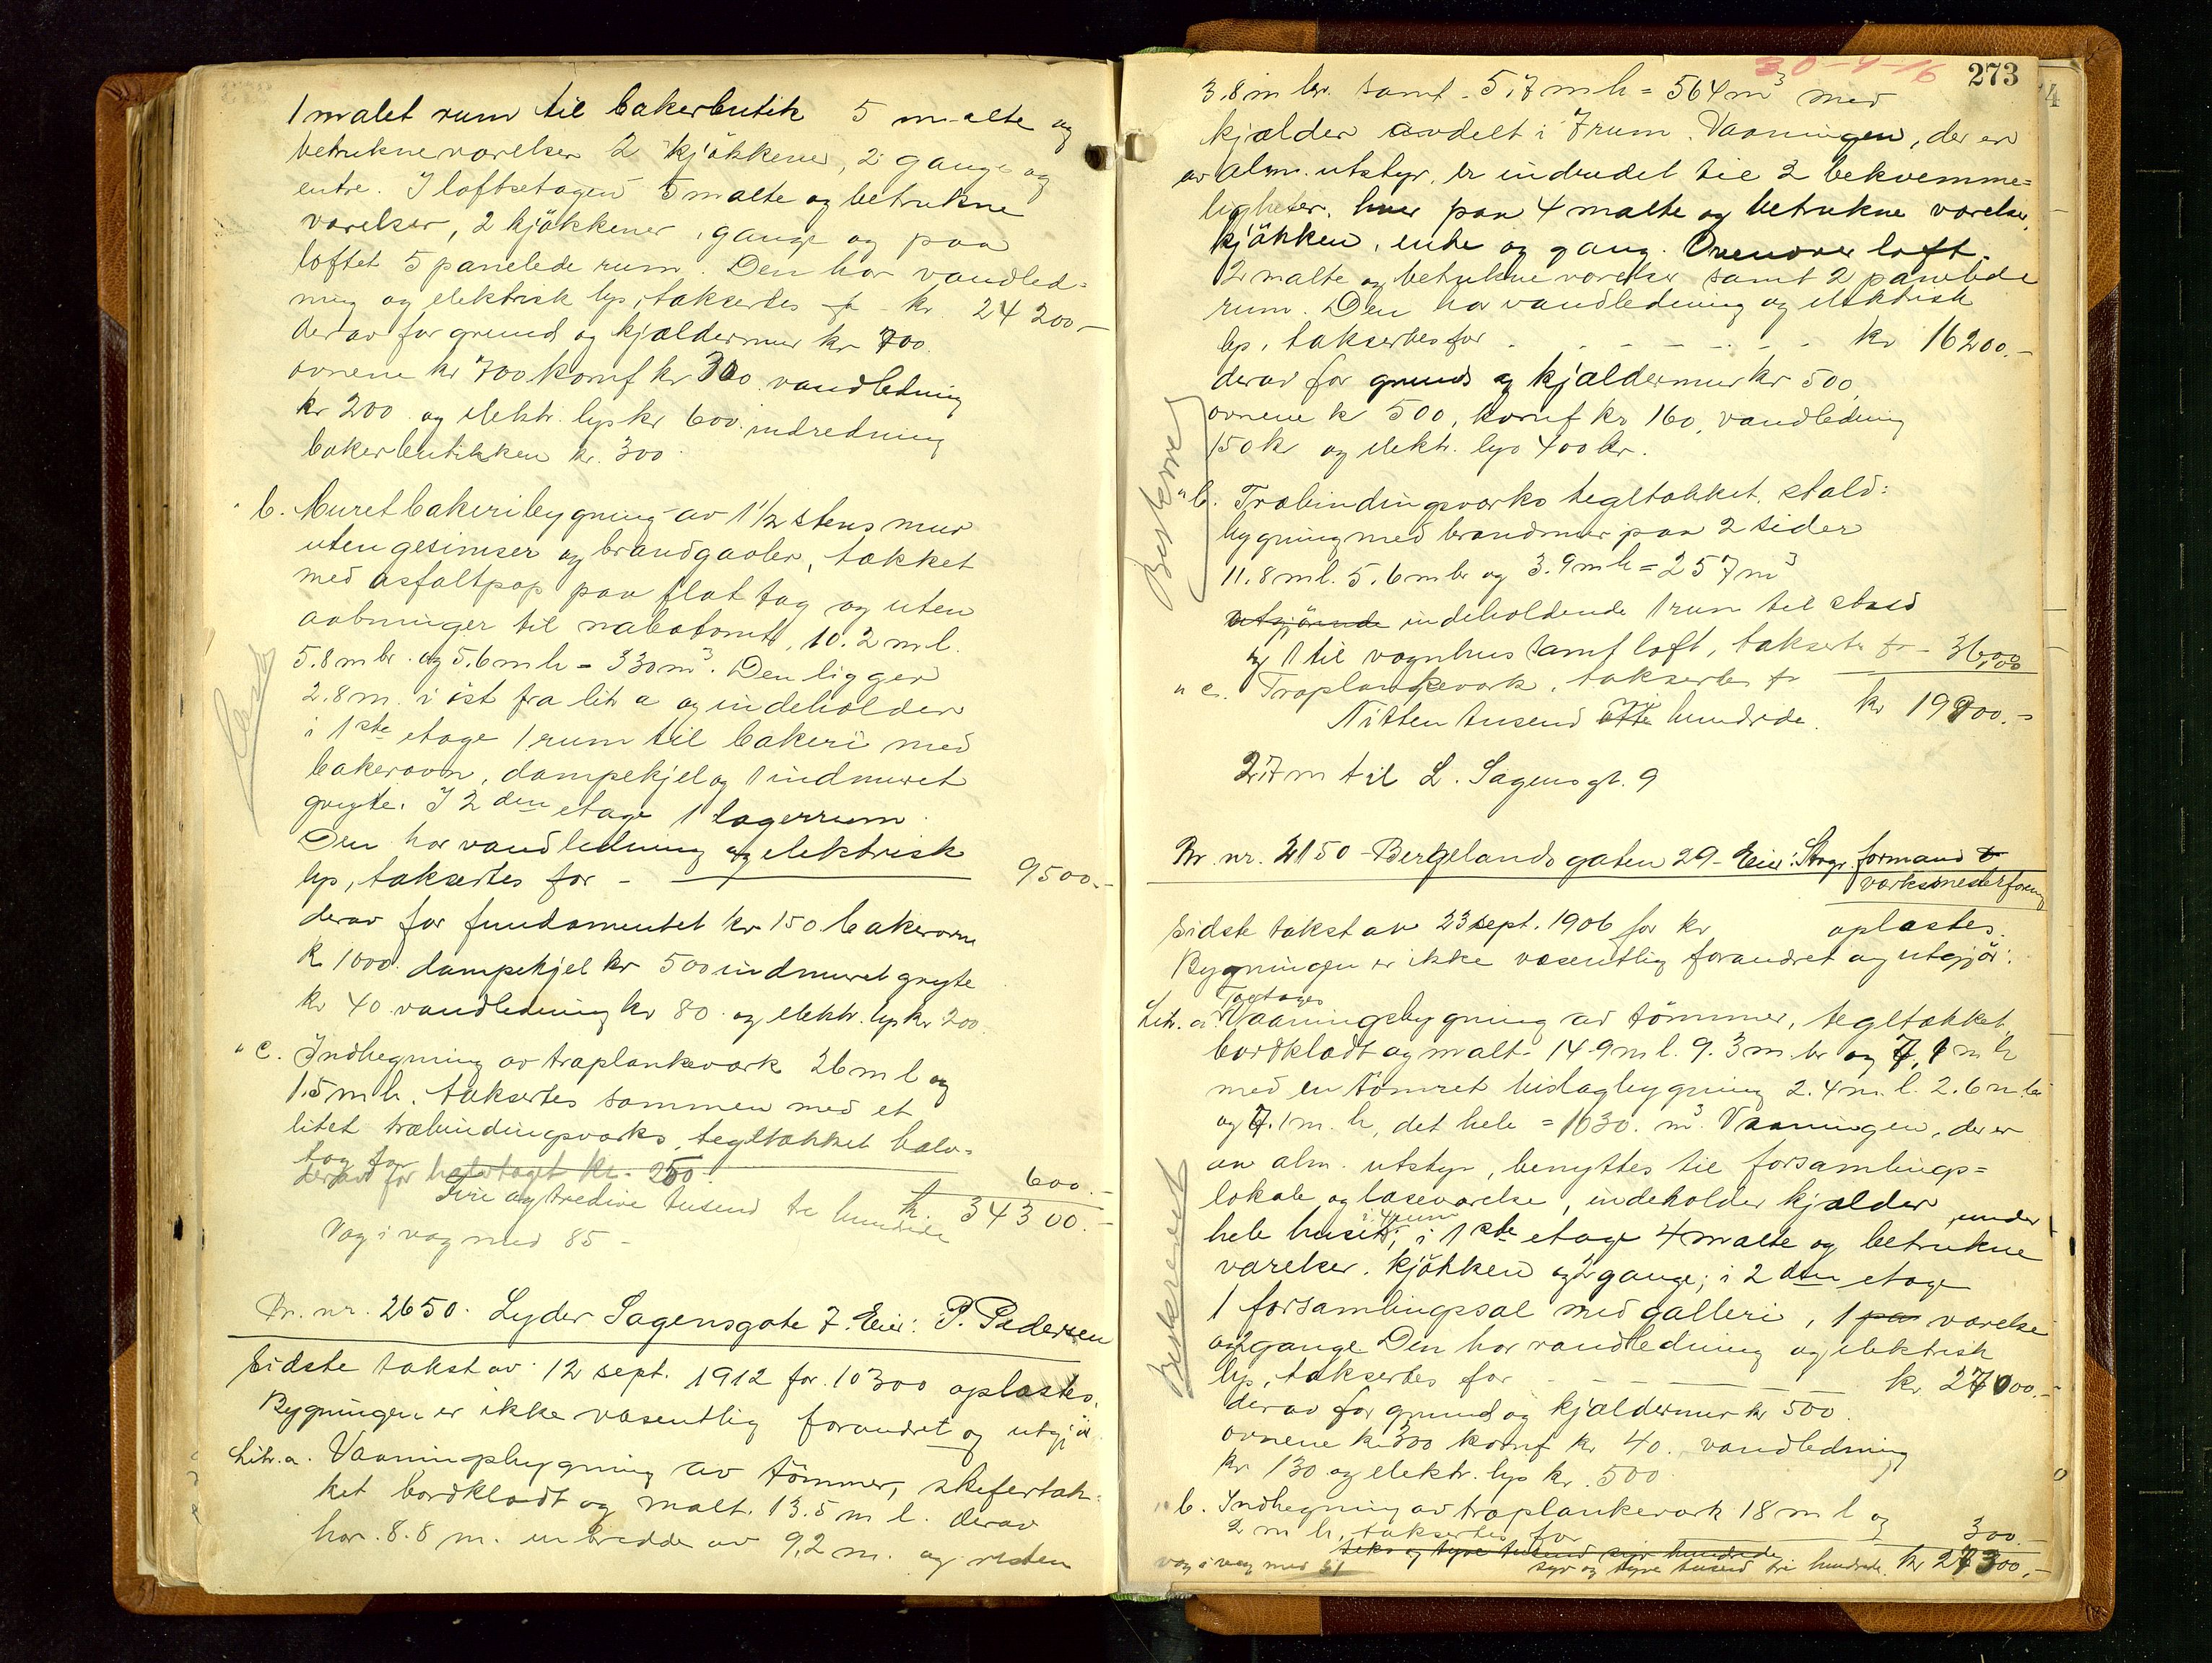 1 malet rum til bakerbutik 5 malte og
betrukne værelser 2 kjökkener, 2 gange og
entre. I loftsetagen 5 malte og betrukne
værelser, 2 kjökkener, gange og paa
loftet 5 panelede rum. Den har vandled-
ning og elektrisk lys, taksertes fr - kr. 24 200.-
derav for grund og kjældermur kr 700.
ovnene kr 700 komf kr 300. vandledning
kr 200 og elektr. lys kr 600. indredning
bakerbutikken kr. 300.
" b. Muret bakeribygning av 1 1/2 stens mur
uten gesimser og brandgavler, tækket
med asfaltpap paa flat tag og uten
aabninger til nabotomt, 10.2 m l.
5.8 m br. og 5.6 m h = 330 m³. Den ligger
2.8 m. i öst fra litr a og indeholder
i 1ste etage 1 rum til bakeri med
bakerovn, dampekjel og 1 indmuret
gryte. I 2den etage 1 lagerrum.
Den har vandledning og elektrisk
lys, taksertes for - 9500.-
derav for fundamentet kr 150 bakerovn
k 1000. dampekjel kr 500 indmuret gryte
kr 40 vandledning kr 80. og elektr. lys kr 200.
" c. Indhegning av træplankeværk 26 m l og
1.5 m h. taksertes sammen med et
litet træbindingsværks, tegltækket halv-
tag for 600.-
derav for halvtaget kr. 250.
Fire og tredive tusend tre hundrede kr. 34300.-
Væg i væg med 85 -
Br. nr. 2650. Lyder Sagensgate 7. Eier: P. Pedersen
Sidste takst av 12 sept. 1912 for 10300 oplæstes.
Bygningen er ikke væsentlig forandret og utgjör
Litr. a. Vaaningsbygning av tömmer, skifertæk-
ket bordklædt og malt. 13.5 m l. derav
har 8.8 m. en bredde av 9,2 m. og resten
30-9-16 273
3.8 m br. samt 5.7 m h = 564 m³ med
kjælder avdelt i 7 rum. Vaaningen, der er
av alm. utstyr, er indredet til 2 bekvemme-
ligheter, hver paa 4 malte og betrukne værelser,
kjökken, entre og gang. Ovenover loft.
2 malte og betrukne værelser samt 2 panelede
rum. Den har vandledning og elektrisk
lys, taksertes for - - - - kr 16200.-
derav for grund og kjældermur kr 500,
ovnene k 500, komf kr 160, vandledning
150 kr og elektr. lys 400 kr.
" b. Træbindingsværks tegltækket stald-
bygning med brandmur paa 2 sider
11.8 m l. 5.6 m br og 3.9 m h = 257 m³
utgjörende indeholdende 1 rum til stald
og 1 til vognhus samt loft, taksertes fr - 3600
" c. Træplankeværk, taksertes fr
Nitten tusend hundrede. kr 19900.-
2.7 m til L. Sagens gt. 9
Br. nr. 2150 - Bergelandsgaten 29 - Eier: Stvgr. formand &
værksmesterforen
Sidste takst av 23 sept. 1906 for kr oplæstes.
Bygningen er ikke væsentlig forandret og utgjör:
Litr. a. Toetages Vaaningsbygning av tömmer, tegltækket,
bordklædt og malt. 14.9 m l. 9.3 m. br og 7,1 m h
med en tömret bislagbygning 2.4 m. l. 2.6 m. br
og 7.1 m. h, det hele = 1030. m³. Vaaningen, der er
av alm. utstyr, benyttes til forsamlings-
lokale og læseværelse, indeholder kjælder under
hele huset i 4 rum; i 1ste etage 4 malte og betrukne
værelser. kjökken og 2 gange; i 2den etage
1 forsamlingssal med galleri, 1 pa værelse
og 2 gange Den har vandledning og elektrisk
lys, taksertes for - - - kr. 27000.-
derav for grund og kjældermur kr 500.
ovnene kr 300 komf kr. 40. vandledning
kr 130 og elektr. lys kr. 500.
" b. Indhegning av træplankeværk 18 m l og
2 m h, taksertes for 300.
seks og tyve tusend syv hundrede
væg i væg med 31 syv og tyve tusend tre hundrede. kr 27300.-